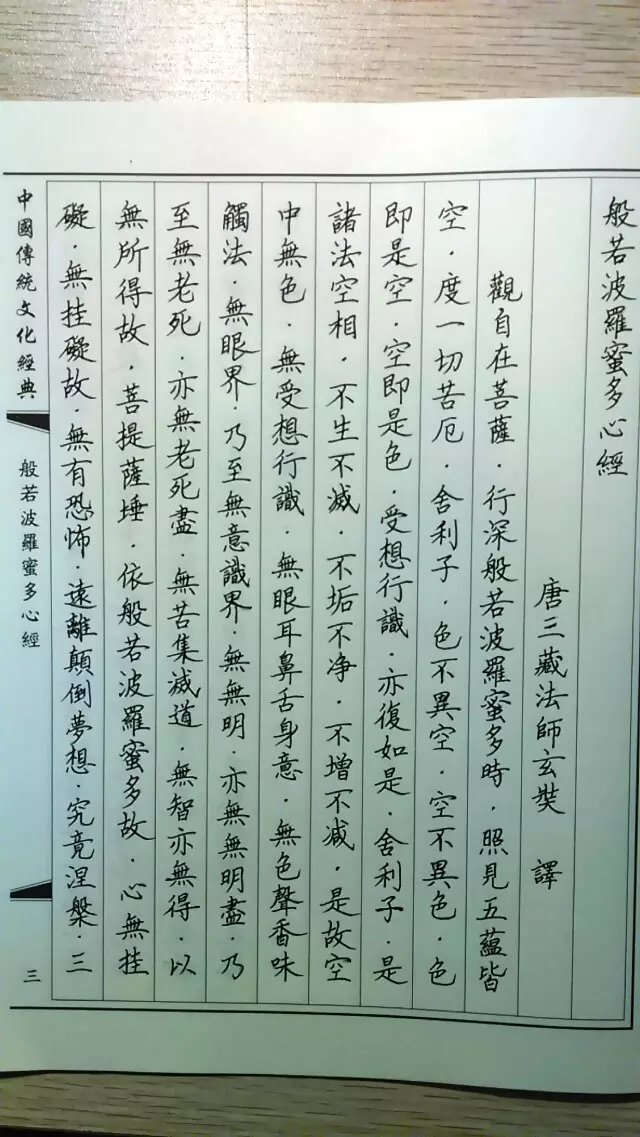 般若波羅蜜多心經
唐三藏法師玄奘 譯
觀自在菩薩．行深般若波羅蜜多時．照見五蘊皆
空．度一切苦厄．舍利子．色不異空．空不異色．色
即是空．空即是色．受想行識．亦復如是．舍利子．是
諸法空相．不生不滅．不垢不净．不增不减．是故空
中無色．無受想行識．無眼耳鼻舌身意．無色聲香味
觸法．無眼界．乃至無意識界．無無明．亦無無明盡．乃
至無老死．亦無老死盡．無苦集滅道．無智亦無得．以
無所得故．菩提薩埵．依般若波羅蜜多故．心無挂
礙．無挂礙故．無有恐怖．遠離顛倒夢想．究竟涅槃．三
中國傳統文化經典
般若波羅蜜多心經
三